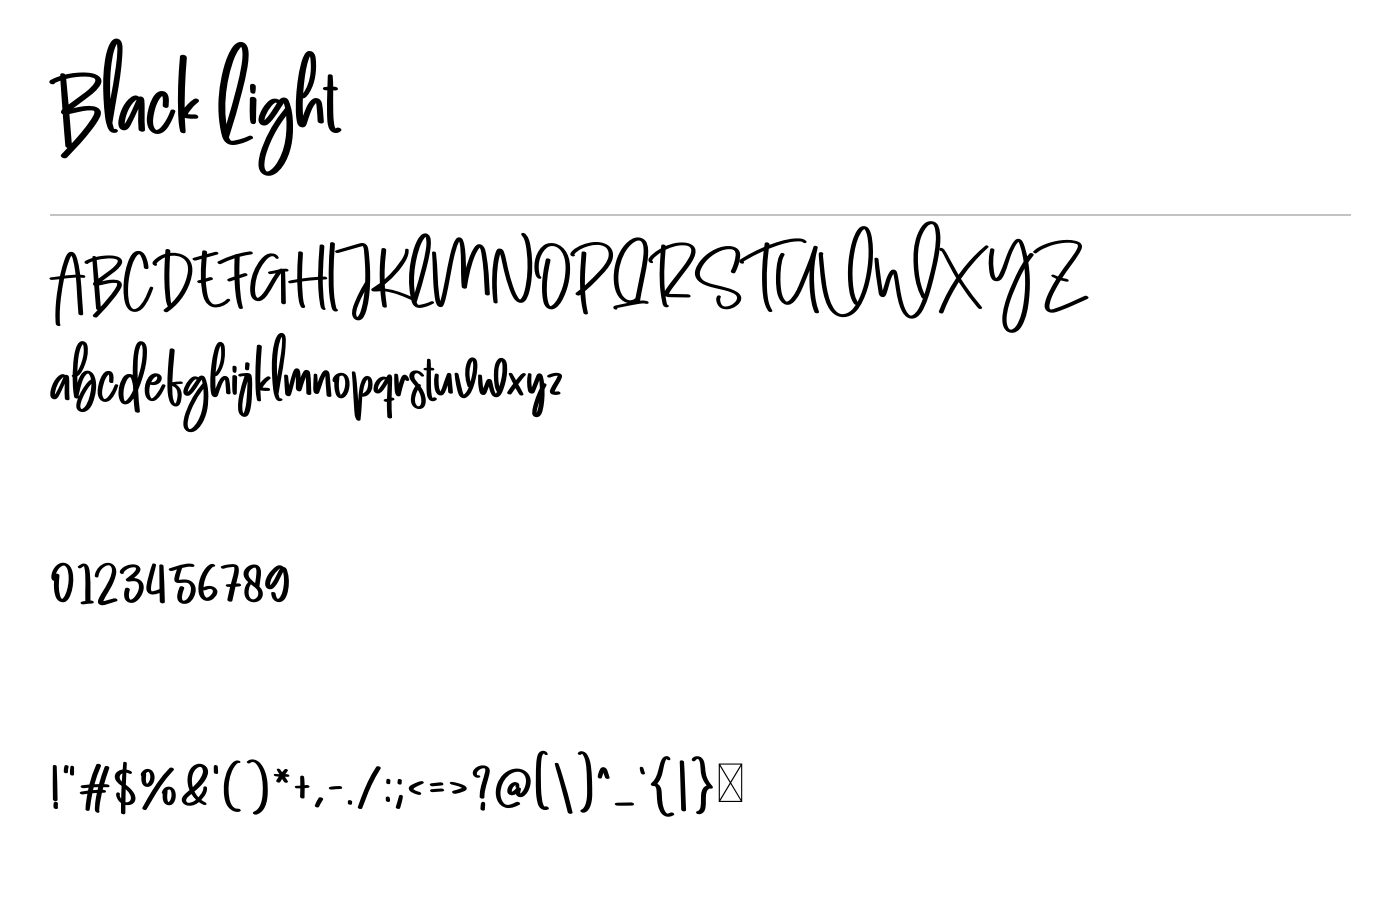 Black Light
ABCDEFGHIJKLMNOPQRSTUVWXYZ
abcdefghijklmnopqrstuvwxyz
0123456789
!"#$%&'()*+,-./:;<=>?@[\]^_`{|}